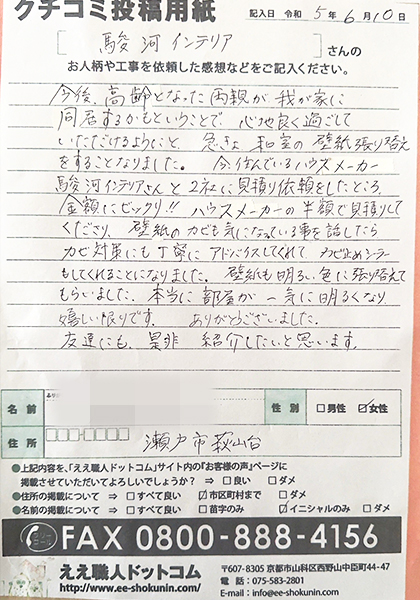 クチコミ投稿用紙
記入日 令和 5年 6月 10日
[ 駿河インテリア ] さんの
お人柄や工事を依頼した感想などをご記入ください。
今後、高齢となった両親が我が家に
同居するかもということで 心地良く過ごして
いただけるようにと、急きょ 和室の壁紙張り替え
をすることなりました。 今、住んでいるハウスメーカー
駿河インテリアさんと2社に見積り依頼をしたところ、
金額にビックリ!! ハウスメーカーの半額で見積りして
くださり、壁紙のカビも気になっている事を話したら
カビ対策にも丁寧にアドバイスしてくれて カビ止めシーラー
もしてくれることになりました。 壁紙も明るい色に張り替えて
もらいました。本当に部屋が一気に明るくなり
嬉しい限りです。 ありがとうございました。
友達にも、是非 紹介したいと思います。
名前
性別 □男性 ☑女性
住所 瀬戸市萩山台
●上記内容を、「ええ職人ドットコム」サイト内の『お客様の声』ページに
掲載させていただいてよろしいでしょうか? ⇒ □良い □ダメ
●住所の掲載について ⇒ □すべて良い ☑市区町村まで □ダメ
●名前の掲載について ⇒ □すべて良い □苗字のみ ☑イニシャルのみ □ダメ
FAX 0800-888-4156
ええ職人ドットコム
http://www.ee-shokunin.com/
〒607-8305 京都市山科区西野山中臣町44-47
電話:075-583-2801
E-mail:info@ee-shokunin.com